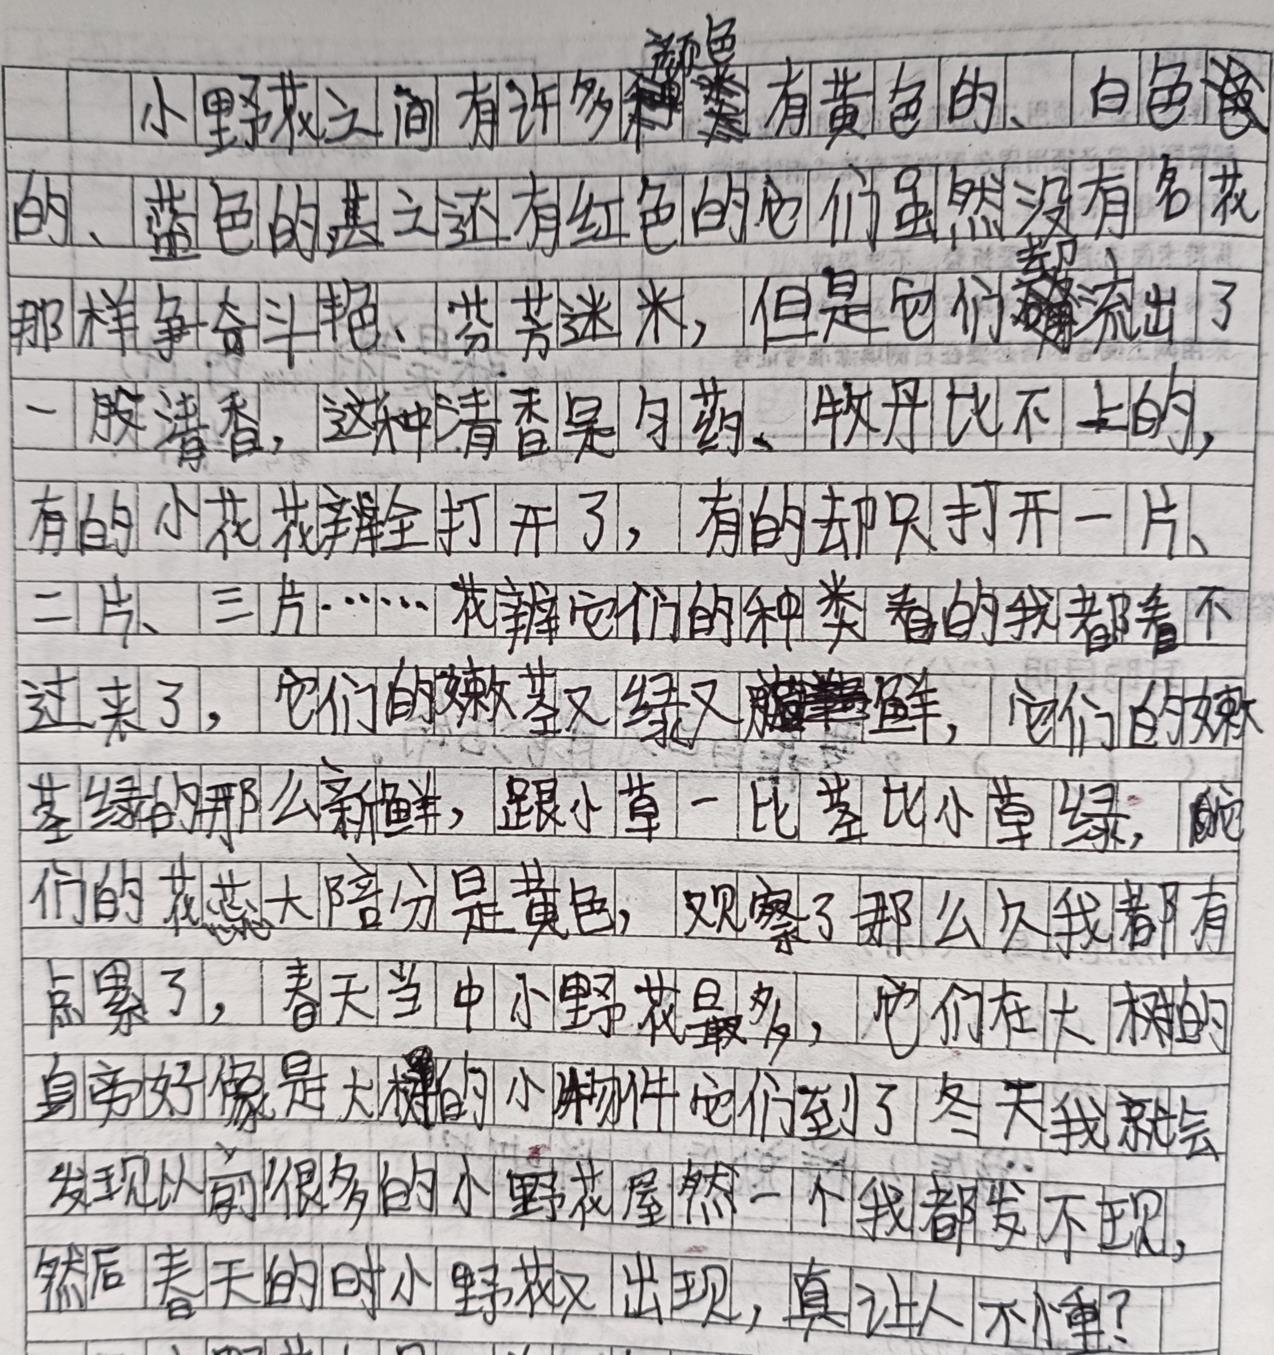 颜色
小野花之间有许多有黄色的、白色
的、蓝色的甚之还有红色的它们虽然没有名花
那样争奇斗艳、芬芳迷米,但是它们却流出了
一股清香,这种清香是勺药、牧丹比不上的,
有的小花花辨全打开了,有的却只打开一片、
二片、三片……花辨它们的种类看的我都看不
过来了,它们的嫩茎又绿又鲜,它们的嫩
茎绿的那么新鲜,跟小草一比茎比小草绿,它
们的花蕊大陪分是黄色,观察了那么久我都有
点累了,春天当中小野花最多,它们在大树的
身旁好像是大树的小物件它们到了冬天我就会
发现以前很多的小野花屋然一个我都发不现,
然后春天的时小野花又出现,真让人不懂?